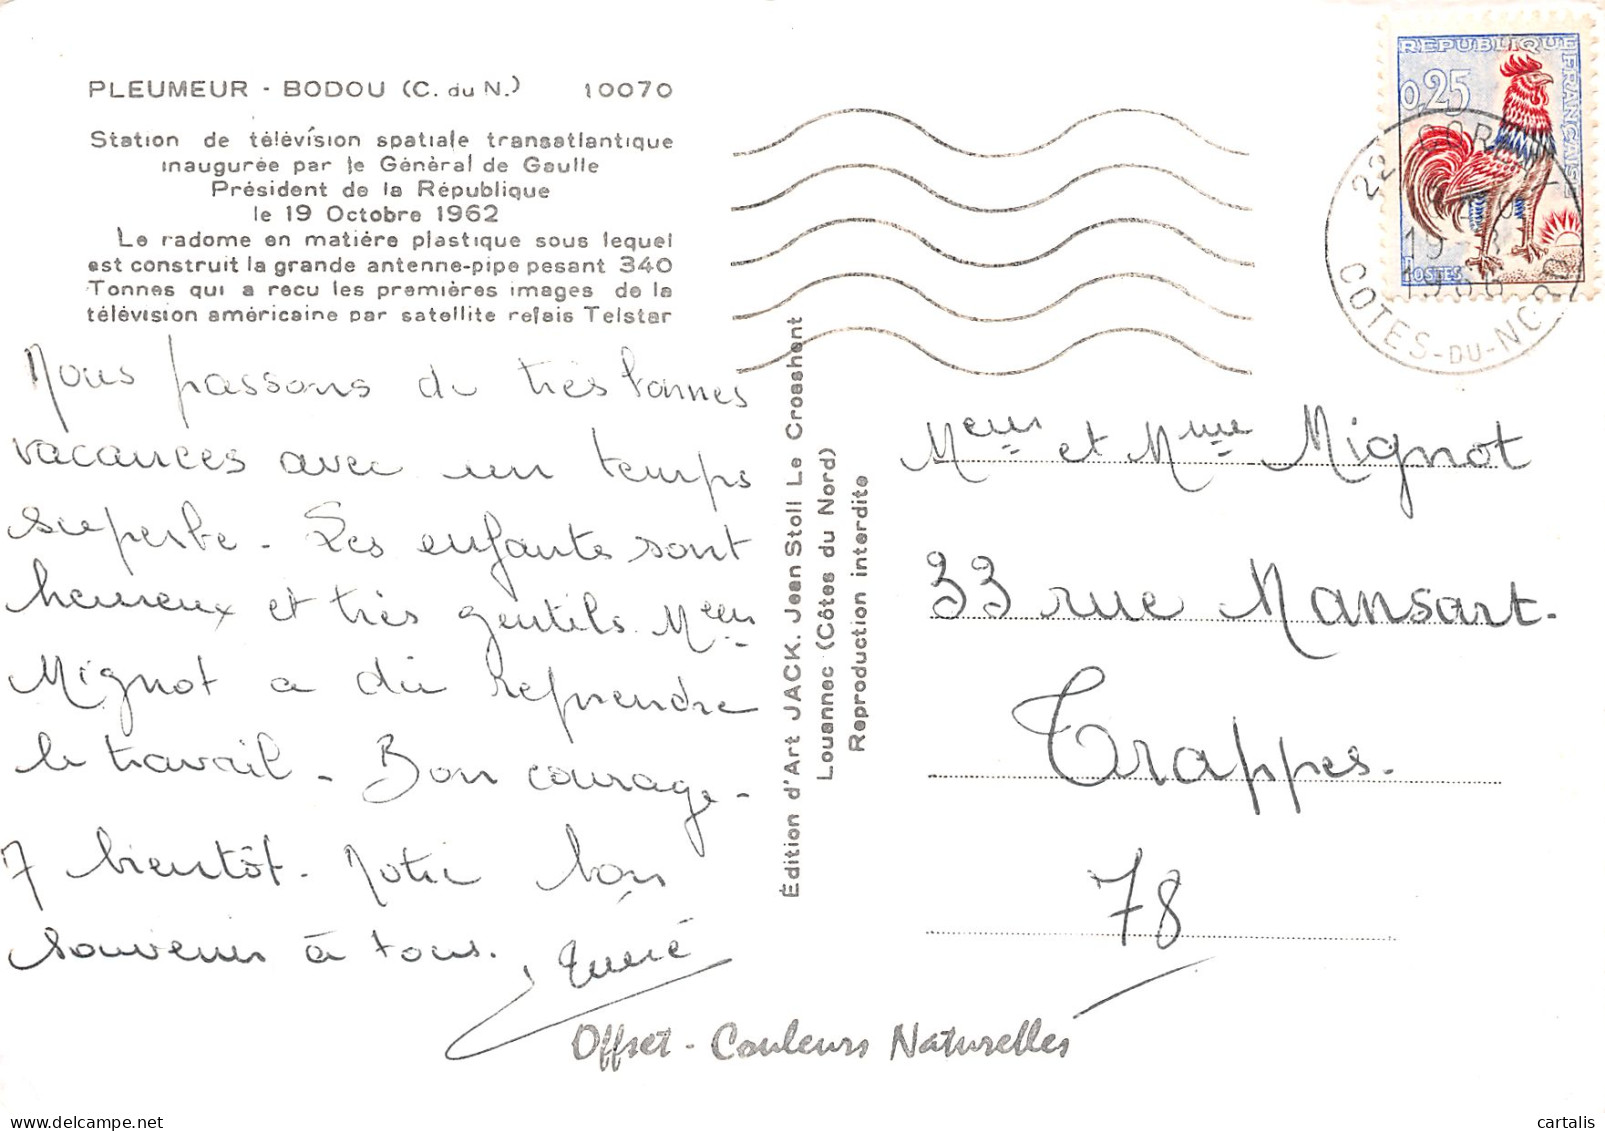 PLEUMEUR - BODOU (C. du N.) 10070
Station de télévision spatiale transatlantique
inaugurée par le Général de Gaulle
Président de la République
le 19 Octobre 1962
Le radome en matière plastique sous lequel
est construit la grande antenne-pipe pesant 340
Tonnes qui a recu les premières images de la
télévision américaine par satellite relais Telstar
Nous passons de très bonnes
vacances avec un temps
superbe - Les enfants sont
heureux et très gentils. Meur
Mignot a dû reprendre
le travail - Bon courage -
A bientôt - Notre bon
souvenir à tous.
Édition d'Art JACK. Jean Stoll Le Crosshent
Louannec (Côtes du Nord)
Reproduction interdite
REPUBLIQUE FRANÇAISE
0,25
POSTES
22
19
COTES-DU-NORD
Meur et Mme Mignot
33 rue Mansart.
Trappes.
78
Offset - Couleurs Naturelles
cartalis